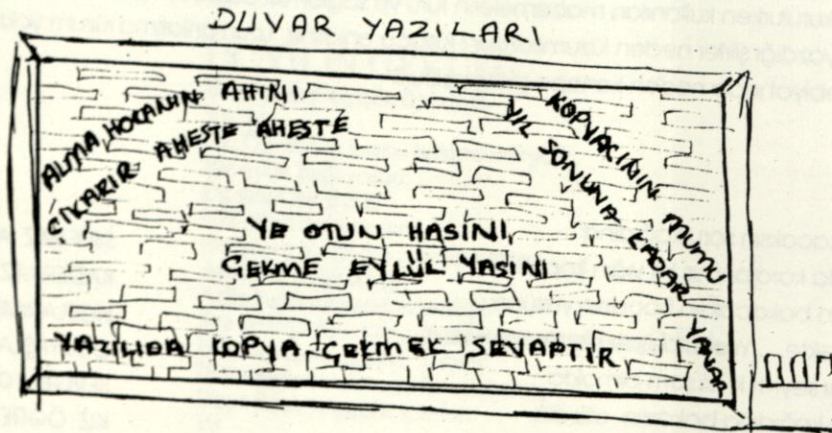 DUVAR YAZILARI
ALMA HOCANIN AHINI
ÇIKARIR AHESTE AHESTE
KOPYACININ MUMU
YIL SONUNA KADAR YANAR
YE OTUN HASINI,
ÇEKME EYLÜL YASINI
YAZILIDA KOPYA ÇEKMEK SEVAPTIR